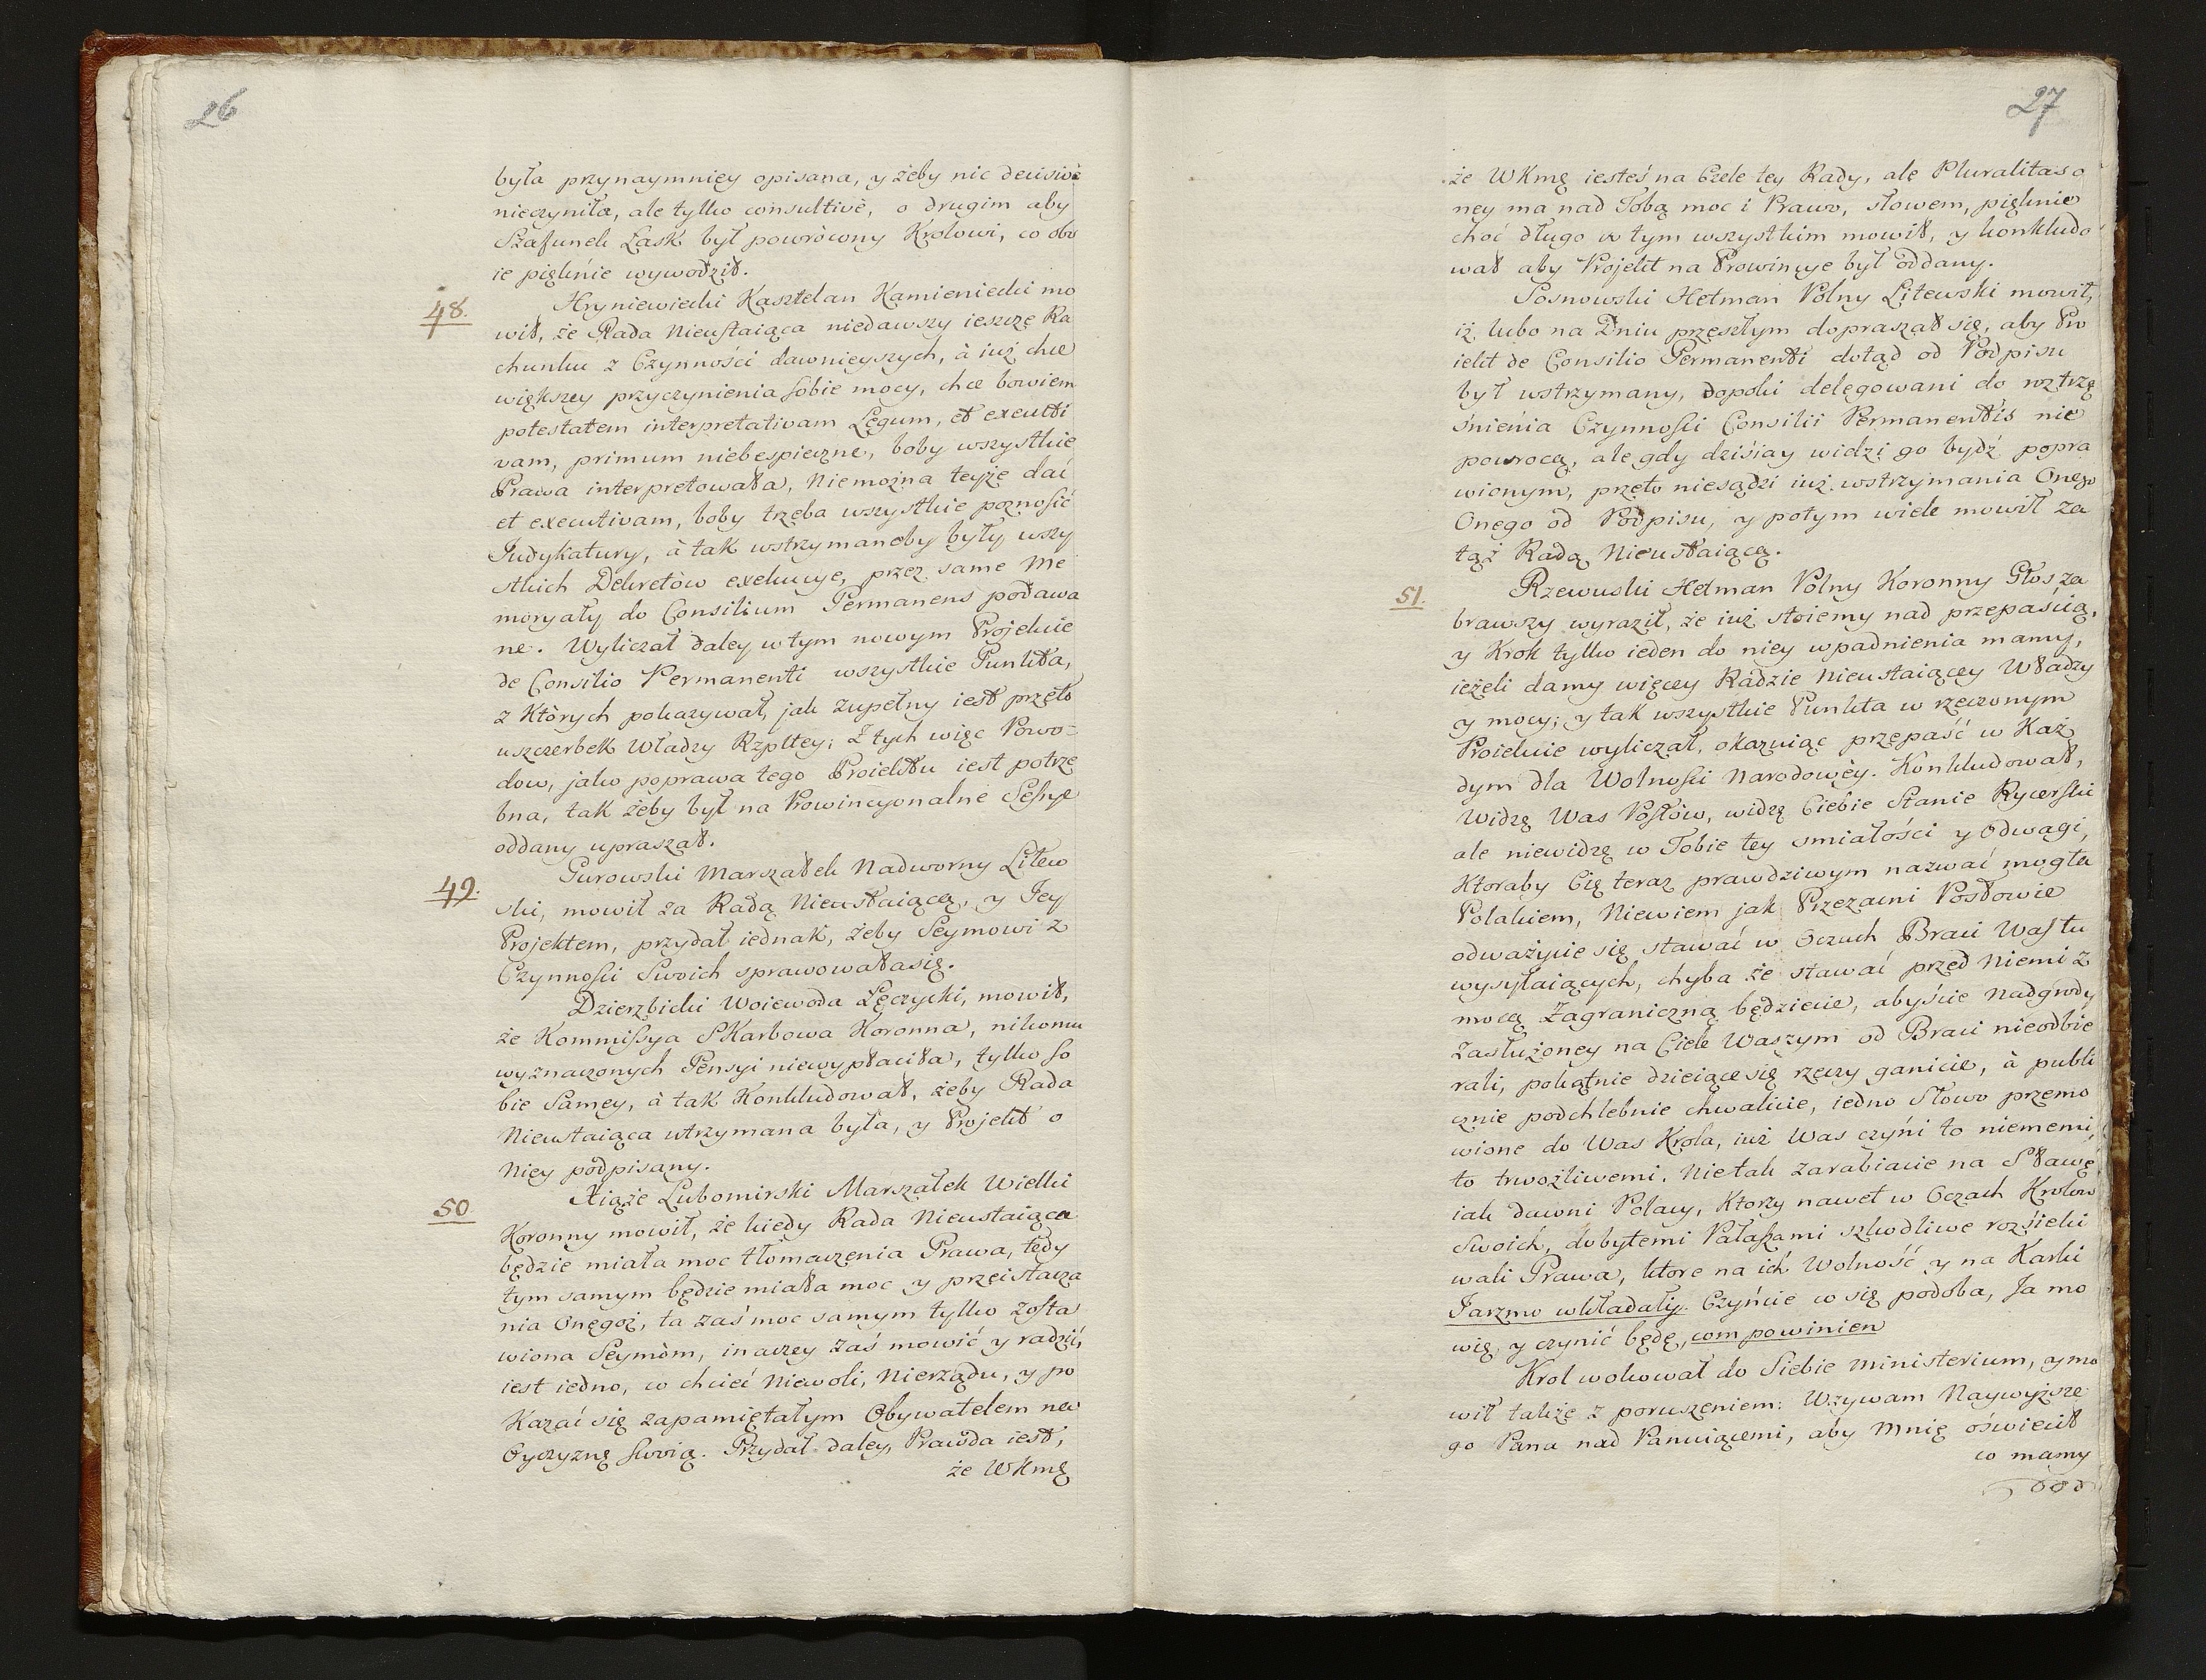 26
była przynaymnięy opisana, y żeby nic decisivè
nieczyniła, ale tylko consultivè, o drugim aby
Szafunek Łask był powròcony Krolowi, co obo
ie pięknie wywodził.
48.
Hryniewiecki Kasztelan Kamieniecki mo
wił, że Rada Nieustaiąca niedawszy ieszczę Ra
chunku z Czynności dawnieyszych, à iuż chce
większey przyczynienia sobie mocy, chce bowiem
potestatem interpretativam Legum, et executi
vam, primum niebespieczne, boby wszystkie
Prawa interpretowała, Niemożna teyże dać
et executivam, boby trzęba wszystkie poznosić
Judykatury, à tak wstrzymaneby były wszy
stkich Dekretòw exekucye, przez same Me
moryały do Consilium Permanens podawa
ne. Wyliczał daley w tym nowym Projekcie
de Consilio Permanenti wszystkie Punkta,
z Których pokazywał, jak zupełny iest przęto
uszczerbek Władzy Rzpltey; Z tych więc Powo=
dow, jako poprawa tego Proiektu iest potrzę
bna, tak żeby był na Prowincyonalne Sessye
oddany upraszał.
49.
Gurowski Marszałek Nadworny Litew
ski, mowił za Radą Nieustaiącą, y Jey
Projektem, przydał iednak, żeby Seymowi z
Czynności Swoich sprawowałasię.
Dzierzbicki Woiewoda Łęczycki, mowił,
że Kommissya SKarbowa Koronna, nikomu
wyznaczonych Pensyi niewypłaciła, tylko so
bie Samey, à tak Konkludował, żeby Rada
Nieustaiąca utrzymana była, y Projekt o
Niey podpisany.
50
Xiąże Lubomirski Marszałek Wielki
Koronny mowił, że kiedy Rada Nieustaiąca
będzie miała moc tłomaczenia Prawa, tedy
tym samym będzie miała moc y przeistacza
nia Onęgoż, ta zaś moc samym tylko zosta
wiona Seymòm, inaczey zaś mowić y radzić,
iest iedno, co chcieć Niewoli, Nierządu, y po
Kazać się zapamiętałym Obywatelem na
Oyczyznę swoią. Przydał daley, Prawda iest,
że WKmę
27
że WKmę iesteś na Czele tęy Rady, ale Pluralitas o
ney ma nad Tobą moc i Prawo, słowem, pięknie
choć długo w tym wszystkim mowił, y konkludo
wał aby Projekt na Prowincye był oddany.
Sosnowski Hetman Polny Litewski mowił,
iż lubo na Dniu przęszłym dopraszał się, aby Pro
iekt de Consilio Permanenti dotąd od Podpisu
był wstrzymany, dopoki delegowani do roztrzą
śnieńia Czynności Consilii Permanentis nie
powrocą, ale gdy dzisiay widzi go bydź popra
wionym, przęto niesądzi iuż wstrzymania Onego
Onego od Podpisu, y potym wiele mowił za
tąż Radą Nieustaiącą.
51.
Rzewuski Hetman Polny Koronny Głos za
brawszy wyraził, że iuż stoiemy nad przepaścią,
y Krok tylko ieden do niey wpadnienia mamy,
ieżeli damy więcey Radzie Nieustaiącey Władzy
y mocy; y tak wszystkie Punkta w rzeczonym
Proiekcie wyliczał, okazuiąc przępaść w Każ
dym dla Wolności Narodowèy. Konkludował,
Widzę Was Posłòw, widzę Ciebie Stanie Rycerski
ale niewidzę w Tobie tey smiałości y Odwagi,
Ktoraby Cię teraz prawdziwym nazwać mogła
Polakiem, Niewiem jak Przezacni Posłowie
odważycie się stawać w Oczach Braci Was tu
wysyłaiących, chyba że stawać przęd Niemi z
mocą Zagraniczną będziecie, abyście Nadgrody
Zasłużoney na Ciele Waszym od Braci nieodbie
rali, pokątnie dzieiące się rzęczy ganicie, à publi
cznie podchlebnie chwalicie, iedno Słowo przęmo
wione do Was Krola, iuż Was czyńi to niememi,
to trwożliwemi. Nie tak zarabiacie na Sławę,
iak dawni Polacy, Ktorzy nawet w Oczach Krolow
Swoich, dobytemi Pałaszami szkodliwe rozsieki
wali Prawa, ktore na ich Wolność y na Karki
Jarzmo wkładały. Czyńcie co się podoba, Ja mo
wię, y czynić będę, com powinien
Krol wokował do Siebie Ministerium, y mo
wił takżę z poruszeniem: Wzywam Naywyższe
go Pana nad Panuiącemi, aby Mnię oświecił
co mamy